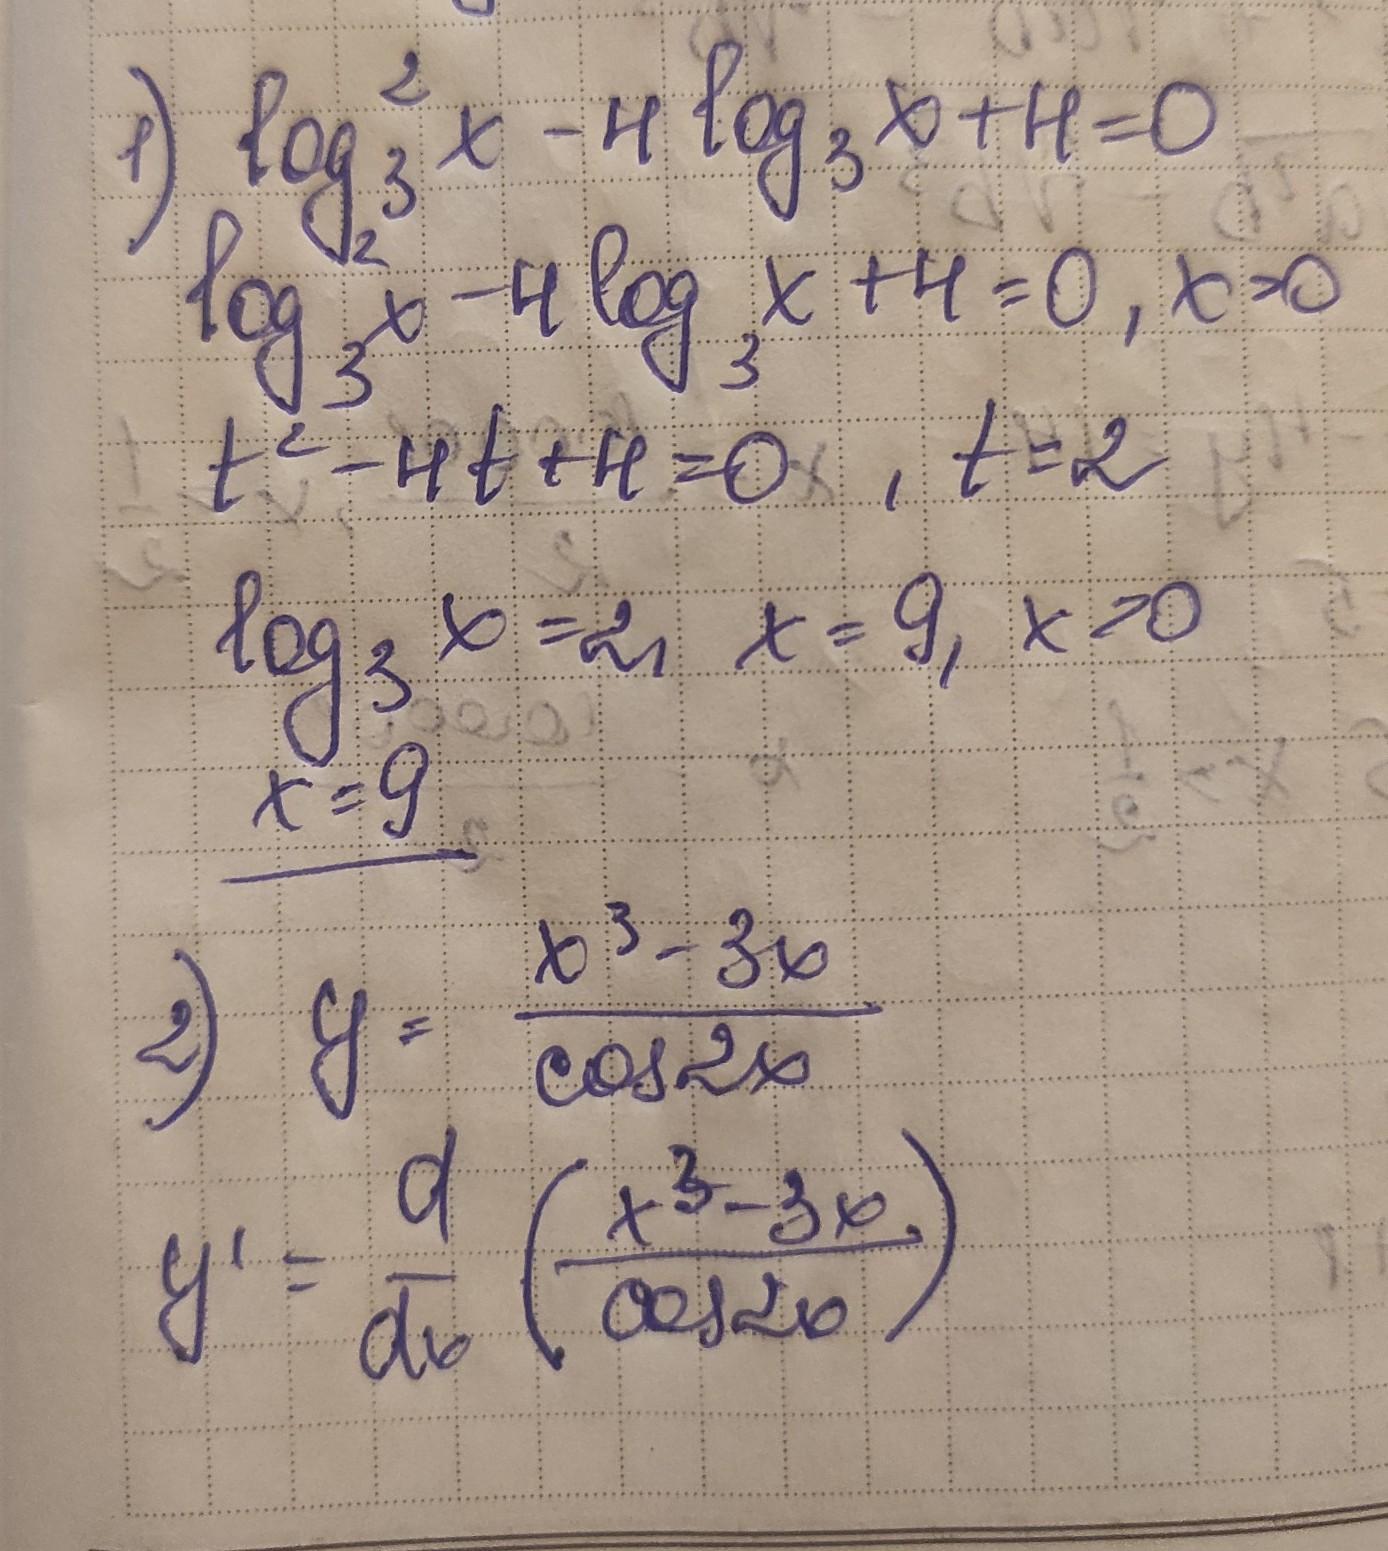 1) log₃² x - 4 log₃ x + 4 = 0
log₃² x - 4 log₃ x + 4 = 0, x > 0
t² - 4t + 4 = 0, t = 2
log₃ x = 2, x = 9, x > 0
x = 9
2) y = (x³ - 3x)/(cos 2x)
y' = d/dx ((x³ - 3x)/(cos 2x))